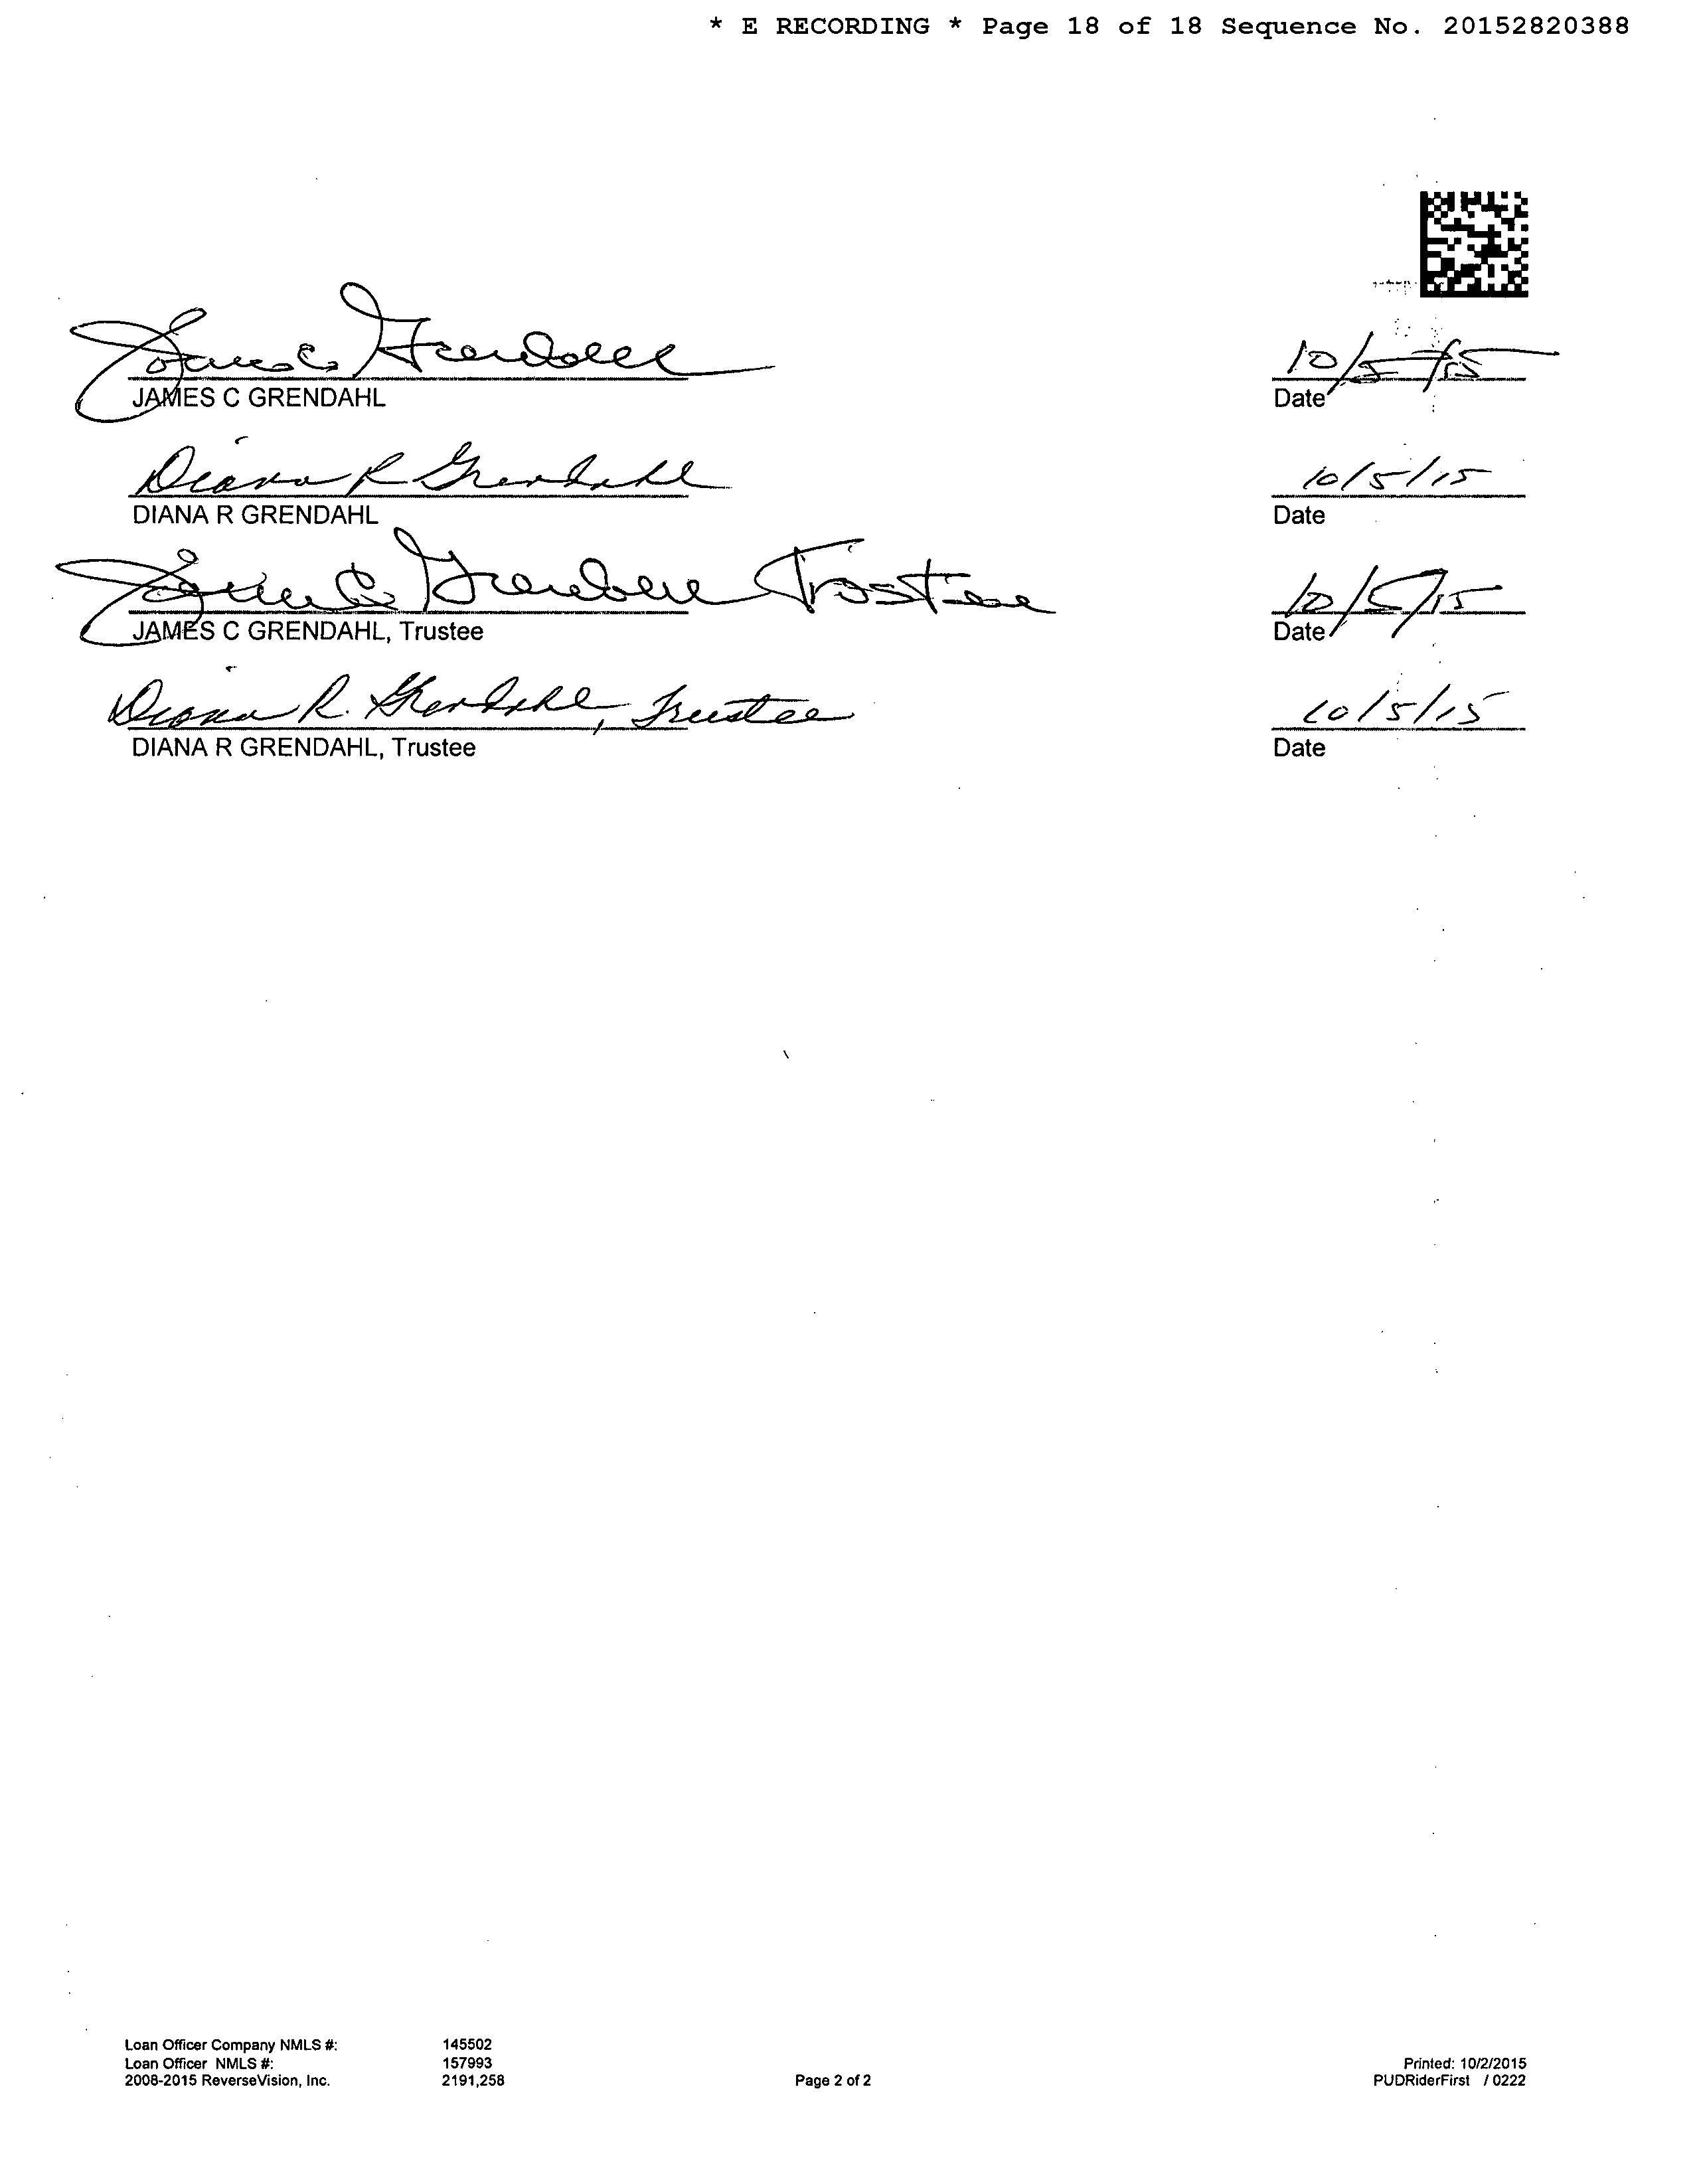 * E RECORDING * Page 18 of 18 Sequence No. 20152820388
James C Grendahl 10/5/15
JAMES C GRENDAHL Date
Diana R Grendahl 10/5/15
DIANA R GRENDAHL Date
James C Grendahl Trustee 10/5/15
JAMES C GRENDAHL, Trustee Date
Diana R. Grendahl, Trustee 10/5/15
DIANA R GRENDAHL, Trustee Date
Loan Officer Company NMLS #: 145502
Loan Officer NMLS #: 157993 Printed: 10/2/2015
2008-2015 ReverseVision, Inc. 2191,258 Page 2 of 2 PUDRiderFirst / 0222